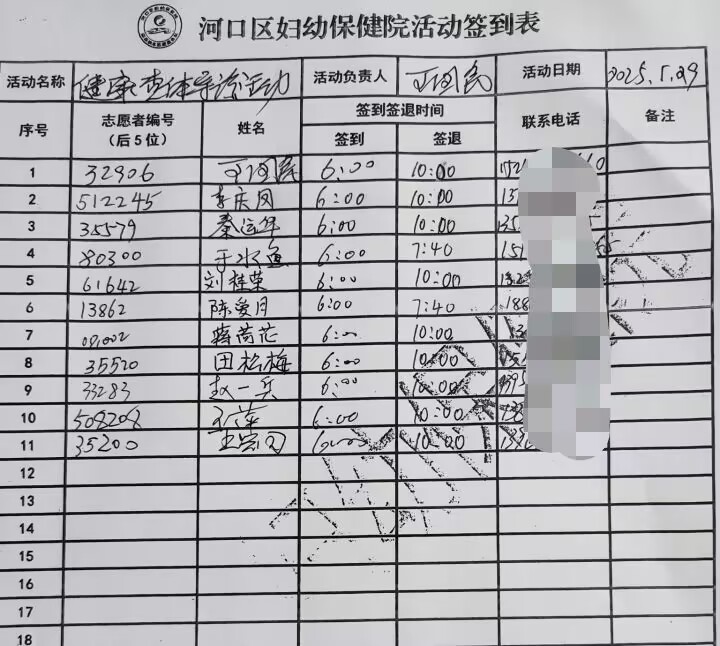 河口区妇幼保健院活动签到表
活动名称 健康查体导诊活动 活动负责人 活动日期 2025.5.29
序号 志愿者编号（后5位） 姓名 签到签退时间 联系电话 备注
签到 签退
1 32906 6:00 10:00
2 512245 李庆凤 6:00 10:00
3 35579 秦运华 6:00 10:00
4 80300 于水鱼 6:00 7:40
5 61642 刘桂荣 6:00 10:00
6 13862 陈爱月 6:00 7:40
7 6:00 10:00
8 35520 田松梅 6:00 10:00
9 33283 赵一兵 6:00 10:00
10 508208 6:00 10:00
11 35200 6:00 10:00
12
13
14
15
16
17
18